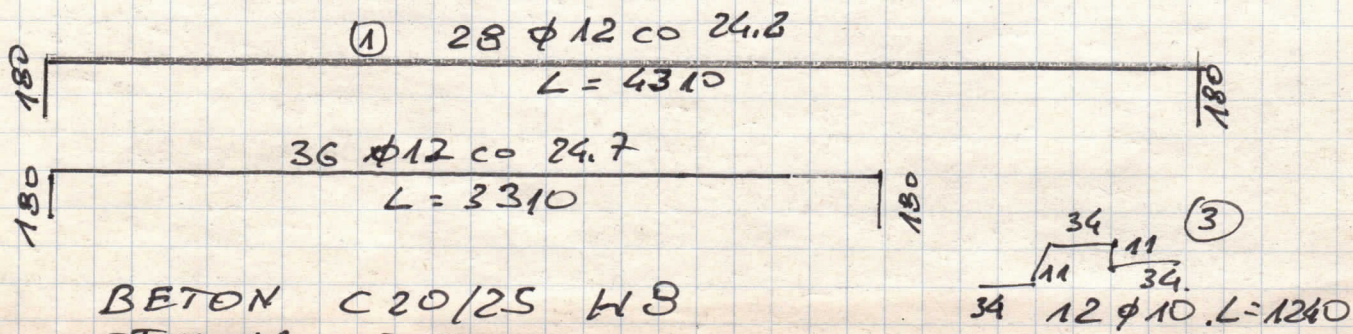 ① 28 φ12 co 24.2
180 L = 4310 180
36 φ12 co 24.7
180 L = 3310 180
34 ③
11
11 34.
34 12 φ10. L=1240
BETON C20/25 W8